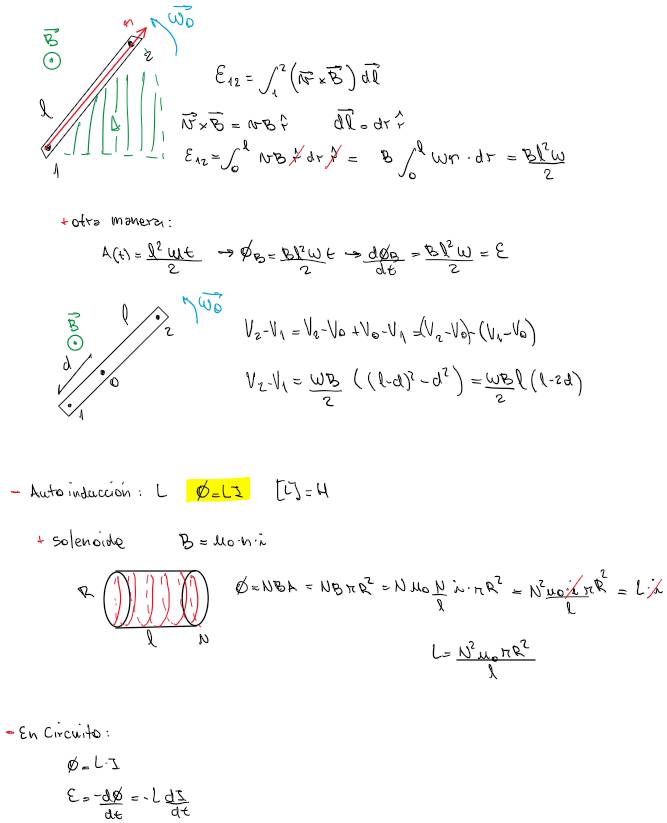 B⃗
r
ω⃗₀
2
l
A
1
ε₁₂ = ∫₁² (v⃗ × B⃗) d⃗l
v⃗ × B⃗ = vB r̂   d⃗l = dr r̂
ε₁₂ = ∫₀ˡ vB r̂ dr r̂ = B ∫₀ˡ ωr · dr = Bl²ω/2
+ otra manera:
A(t) = l²ωt/2 → Ø_B = Bl²ωt/2 → dØ_B/dt = Bl²ω/2 = ε
B⃗
d
l
ω⃗₀
2
0
1
V₂-V₁ = V₂-V₀ + V₀-V₁ = (V₂-V₀) - (V₁-V₀)
V₂-V₁ = ωB/2 ((l-d)² - d²) = ωB/2 l (l-2d)
- Autoinducción: L   Ø = LI   [L] = H
+ solenoide   B = μ₀·n·i
R
l
N
Ø = NBA = NBπR² = N μ₀ N/l i·πR² = N²μ₀ i πR²/l = L i
L = N²μ₀πR²/l
- En Circuito:
Ø = L·I
ε = -dØ/dt = -L dI/dt